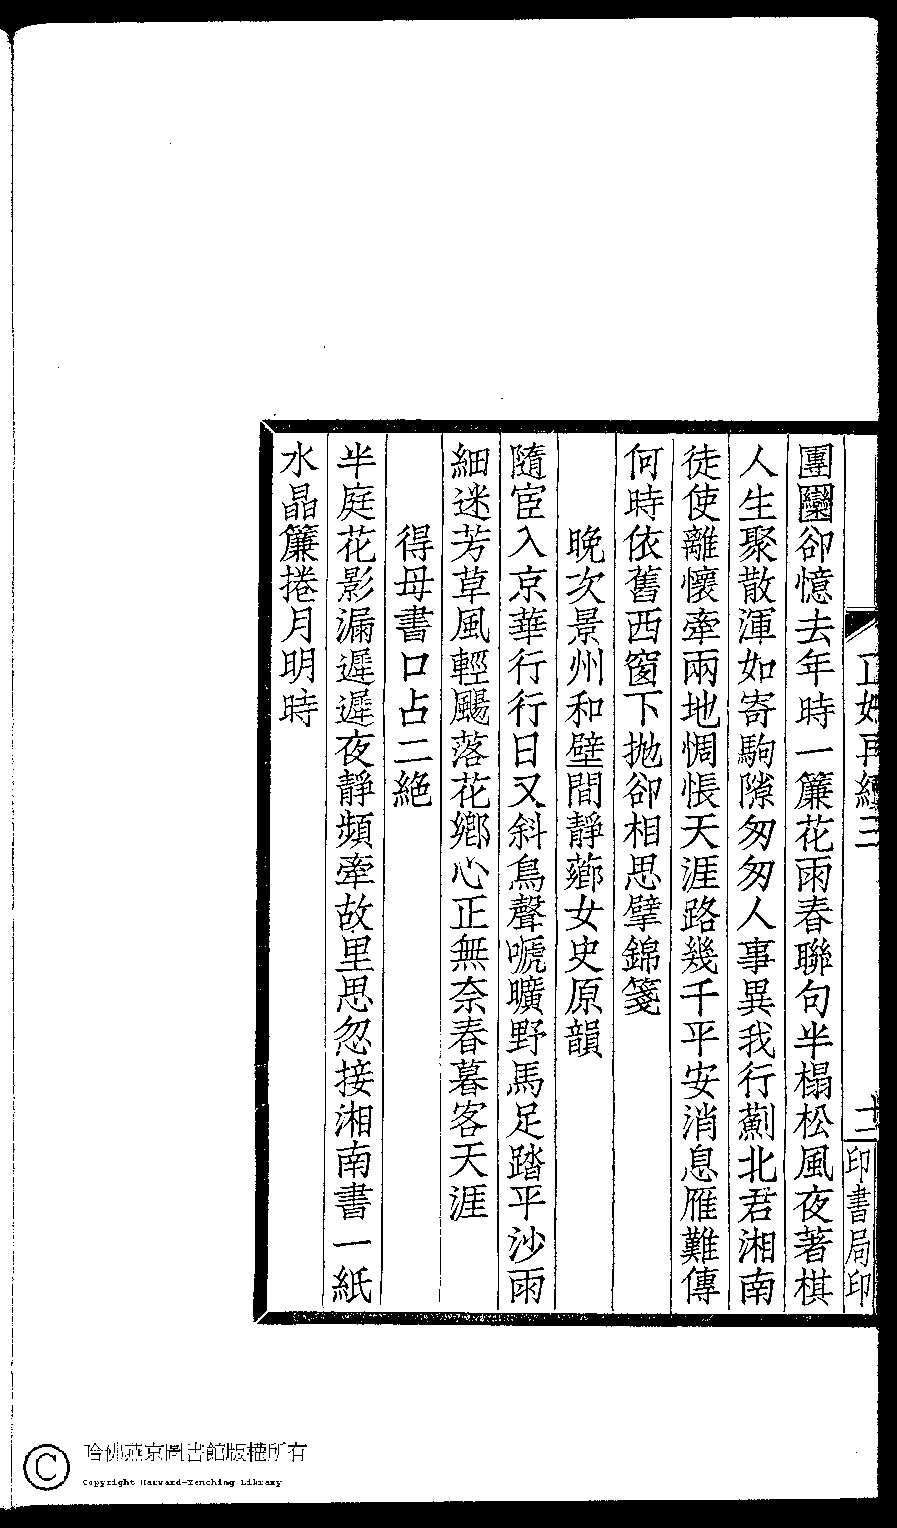 再續三
十二
印書局印
團圞卻憶去年時一簾花雨春聯句半榻松風夜著棋
人生聚散渾如寄駒隙匆匆人事異我行薊北君湘南
徒使離懷牽兩地惆悵天涯路幾千平安消息雁難傳
何時依舊西窗下拋卻相思擘錦箋
晚次景州和壁間靜薌女史原韻
隨宦入京華行行日又斜鳥聲嗁曠野馬足踏平沙雨
細迷芳草風輕颺落花鄉心正無奈春暮客天涯
得母書口占二絕
半庭花影漏遲遲夜靜頻牽故里思忽接湘南書一紙
水晶簾捲月明時
哈佛燕京圖書館版權所有
Copyright Harvard-Yenching Library